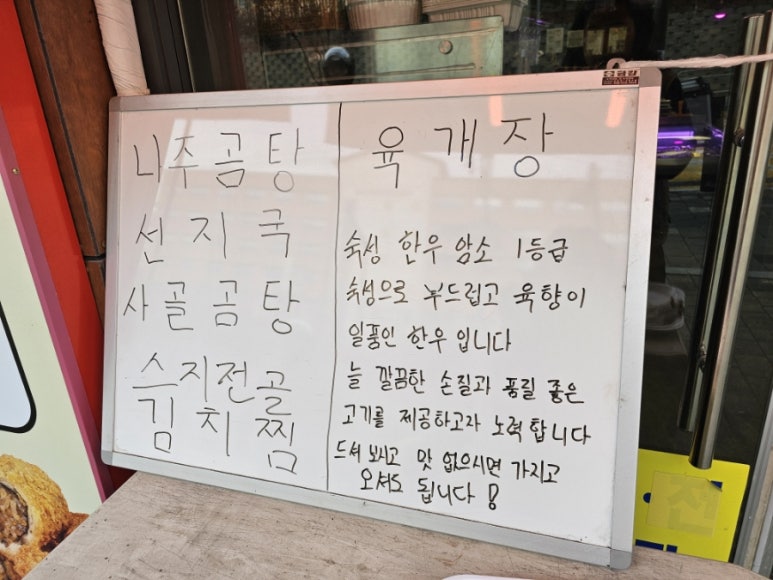 나주곰탕
선지국
사골곰탕
스지전골
김치찜
육개장
숙성 한우 암소 1등급
숙성으로 부드럽고 육향이
일품인 한우 입니다
늘 깔끔한 손질과 품질 좋은
고기를 제공하고자 노력합니다
드셔 보시고 맛 없으시면 가지고
오셔도 됩니다!